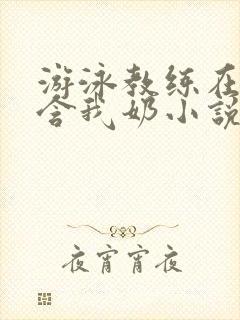 游泳教练在
含我奶小說
夜宵宵夜